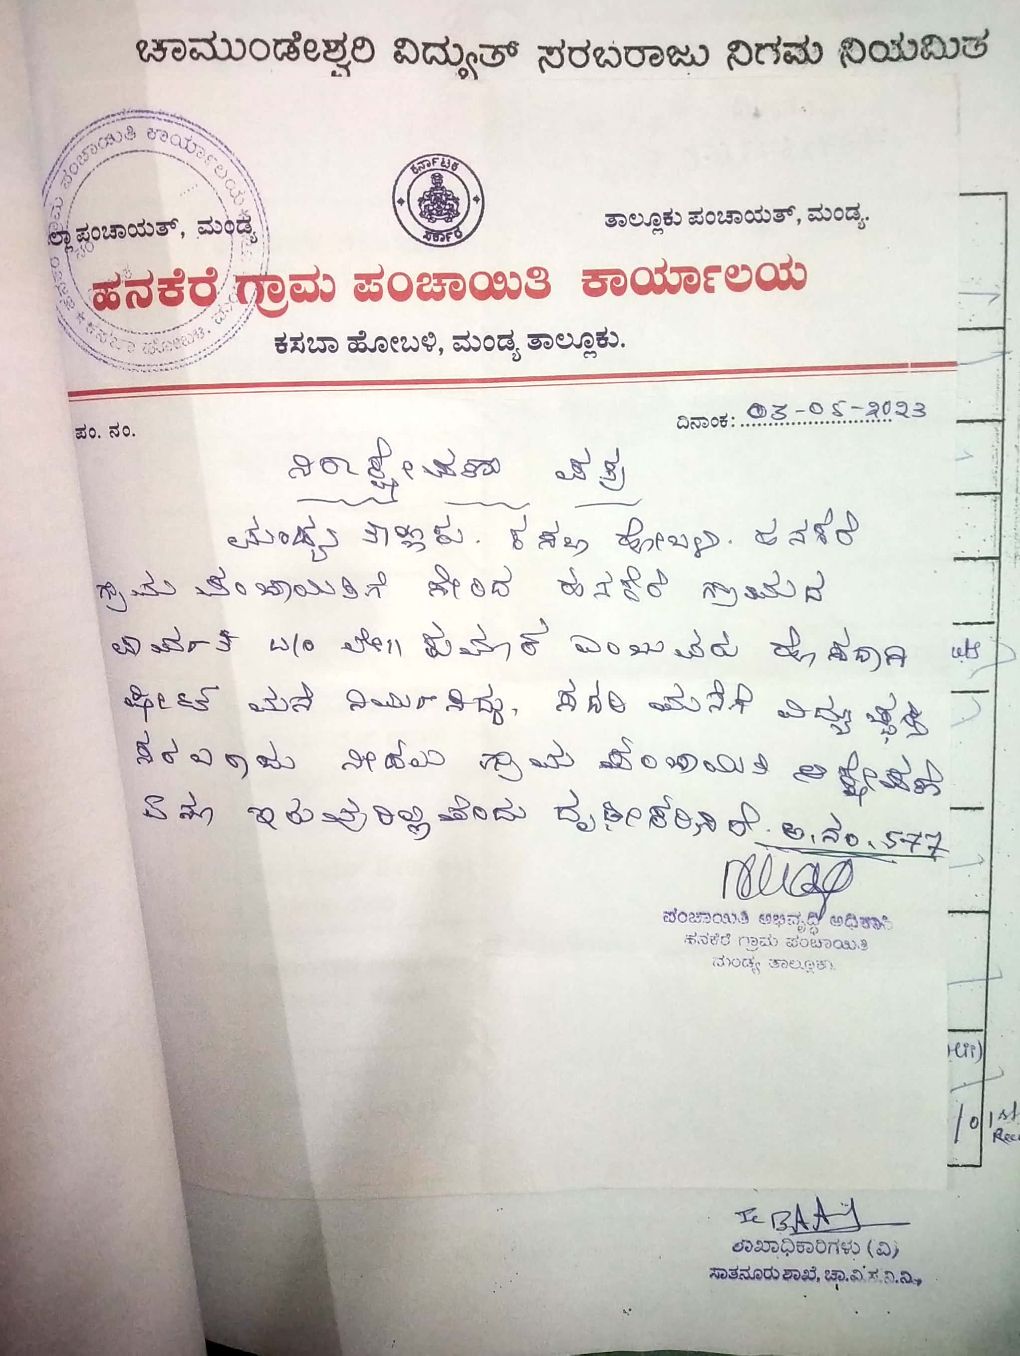 ಚಾಮುಂಡೇಶ್ವರಿ ವಿದ್ಯುತ್ ಸರಬರಾಜು ನಿಗಮ ನಿಯಮಿತ
ಕರ್ನಾಟಕ
ಸರ್ಕಾರ
ಲ್ಲಾ ಪಂಚಾಯತ್, ಮಂಡ್ಯ
ತಾಲ್ಲೂಕು ಪಂಚಾಯತ್, ಮಂಡ್ಯ.
ಹನಕೆರೆ ಗ್ರಾಮ ಪಂಚಾಯಿತಿ ಕಾರ್ಯಾಲಯ
ಕಸಬಾ ಹೋಬಳಿ, ಮಂಡ್ಯ ತಾಲ್ಲೂಕು.
ಪಂ. ನಂ.
ದಿನಾಂಕ: 03-05-2023
ನಿರಾಕ್ಷೇಪಣಾ ಪತ್ರ
ಮಂಡ್ಯ ತಾಲ್ಲೂಕು. ಕಸಬಾ ಹೋಬಳಿ. ಹನಕೆರೆ
ಗ್ರಾಮ ಪಂಚಾಯಿತಿಗೆ ಸೇರಿದ ಹನಕೆರೆ ಗ್ರಾಮದ
ಕುಮಾರ ಎಂಬುವರು ಹೊಸದಾಗಿ
ಮನೆ ನಿರ್ಮಿಸಿದ್ದು, ಸದರಿ ಮನೆಗೆ ವಿದ್ಯುಚ್ಛಕ್ತಿ
ಸರಬರಾಜು ನೀಡಲು ಗ್ರಾಮ ಪಂಚಾಯಿತಿ ಆಕ್ಷೇಪಣೆ
ಏನೂ ಇರುವುದಿಲ್ಲವೆಂದು ದೃಢೀಕರಿಸಿದೆ. ಅ.ನಂ. 577
ಪಂಚಾಯಿತಿ ಅಭಿವೃದ್ಧಿ ಅಧಿಕಾರಿ
ಹನಕೆರೆ ಗ್ರಾಮ ಪಂಚಾಯಿತಿ
ಮಂಡ್ಯ ತಾಲ್ಲೂಕು.
ಶಾಖಾಧಿಕಾರಿಗಳು (ವಿ)
ಸಾತನೂರು ಶಾಖೆ, ಚಾ.ವಿ.ಸ.ನಿ.ನಿ.,